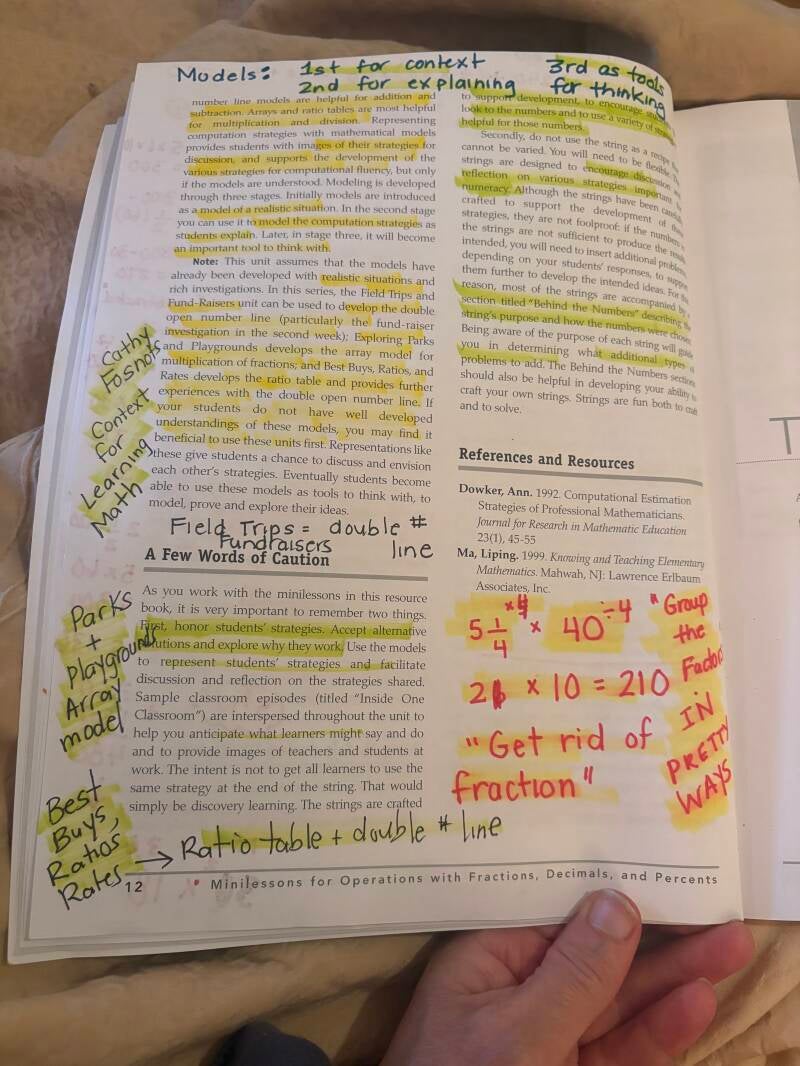 Models: 1st for context
2nd for explaining
3rd as tools
for thinking
number line models are helpful for addition and
subtraction. Arrays and ratio tables are most helpful
for multiplication and division. Representing
computation strategies with mathematical models
provides students with images of their strategies for
discussion, and supports the development of the
various strategies for computational fluency, but only
if the models are understood. Modeling is developed
through three stages. Initially models are introduced
as a model of a realistic situation. In the second stage
you can use it to model the computation strategies as
students explain. Later, in stage three, it will become
an important tool to think with.
Note: This unit assumes that the models have
already been developed with realistic situations and
rich investigations. In this series, the Field Trips and
Fund-Raisers unit can be used to develop the double
open number line (particularly the fund-raiser
investigation in the second week); Exploring Parks
and Playgrounds develops the array model for
multiplication of fractions; and Best Buys, Ratios, and
Rates develops the ratio table and provides further
experiences with the double open number line. If
your students do not have well developed
understandings of these models, you may find it
beneficial to use these units first. Representations like
these give students a chance to discuss and envision
each other's strategies. Eventually students become
able to use these models as tools to think with, to
model, prove and explore their ideas.
Cathy
Fosnots
Context
for
Learning
Math
Field Trips = double #
Fundraisers line
A Few Words of Caution
As you work with the minilessons in this resource
book, it is very important to remember two things.
First, honor students' strategies. Accept alternative
solutions and explore why they work. Use the models
to represent students' strategies and facilitate
discussion and reflection on the strategies shared.
Sample classroom episodes (titled "Inside One
Classroom") are interspersed throughout the unit to
help you anticipate what learners might say and do
and to provide images of teachers and students at
work. The intent is not to get all learners to use the
same strategy at the end of the string. That would
simply be discovery learning. The strings are crafted
Parks
+
Playgrounds
Array
model
Best
Buys,
Ratios
Rates → Ratio table + double # line
to support development, to encourage
look to the numbers and to use a variety of
helpful for those numbers.
Secondly, do not use the string as a recipe
cannot be varied. You will need to be flexible.
strings are designed to encourage discussion
reflection on various strategies important
numeracy. Although the strings have been
crafted to support the development of
strategies, they are not foolproof: if the numbers
the strings are not sufficient to produce the
intended, you will need to insert additional problems
depending on your students' responses, to
them further to develop the intended ideas. For
reason, most of the strings are accompanied by
section titled "Behind the Numbers" describing
string's purpose and how the numbers were chosen.
Being aware of the purpose of each string will guide
you in determining what additional types of
problems to add. The Behind the Numbers sections
should also be helpful in developing your ability to
craft your own strings. Strings are fun both to craft
and to solve.
References and Resources
Dowker, Ann. 1992. Computational Estimation
Strategies of Professional Mathematicians.
Journal for Research in Mathematic Education
23(1), 45-55
Ma, Liping. 1999. Knowing and Teaching Elementary
Mathematics. Mahwah, NJ: Lawrence Erlbaum
Associates, Inc.
5 1/4 ×4 × 40 ÷4
21 × 10 = 210
"Get rid of
fraction"
"Group
the
Factors
IN
PRETTY
WAYS
12 • Minilessons for Operations with Fractions, Decimals, and Percents
T